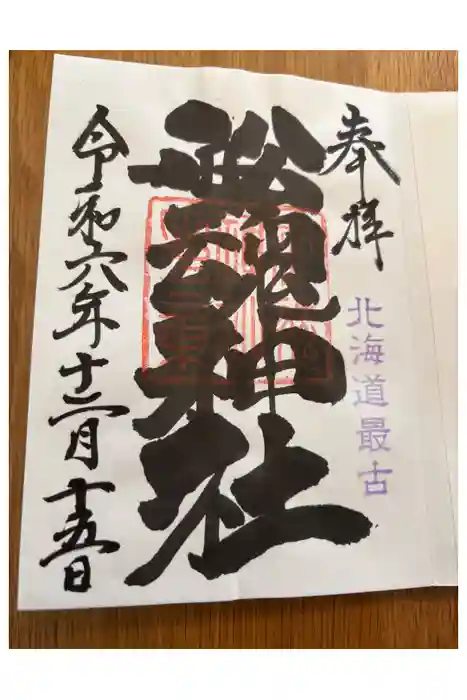 奉拝
北海道最古
船魂神社
令和六年十二月十五日